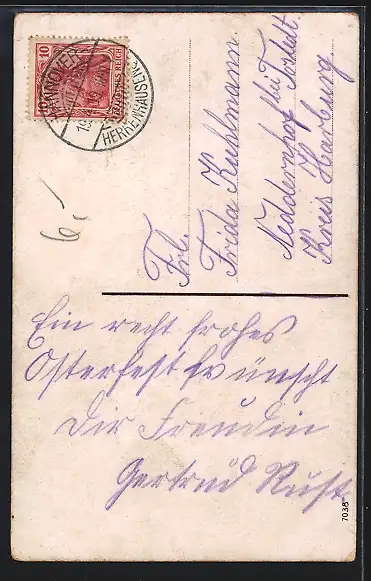 10
HANNOVER
DEUTSCHES REICH
HERRENHAUSEN
6.-
Frl.
Frida Kuhlmann
Neddernhof bei Tostedt.
Kreis Harburg
Ein recht frohes
Osterfest wünscht
Dir Freundin
Gertrud Rust
7038